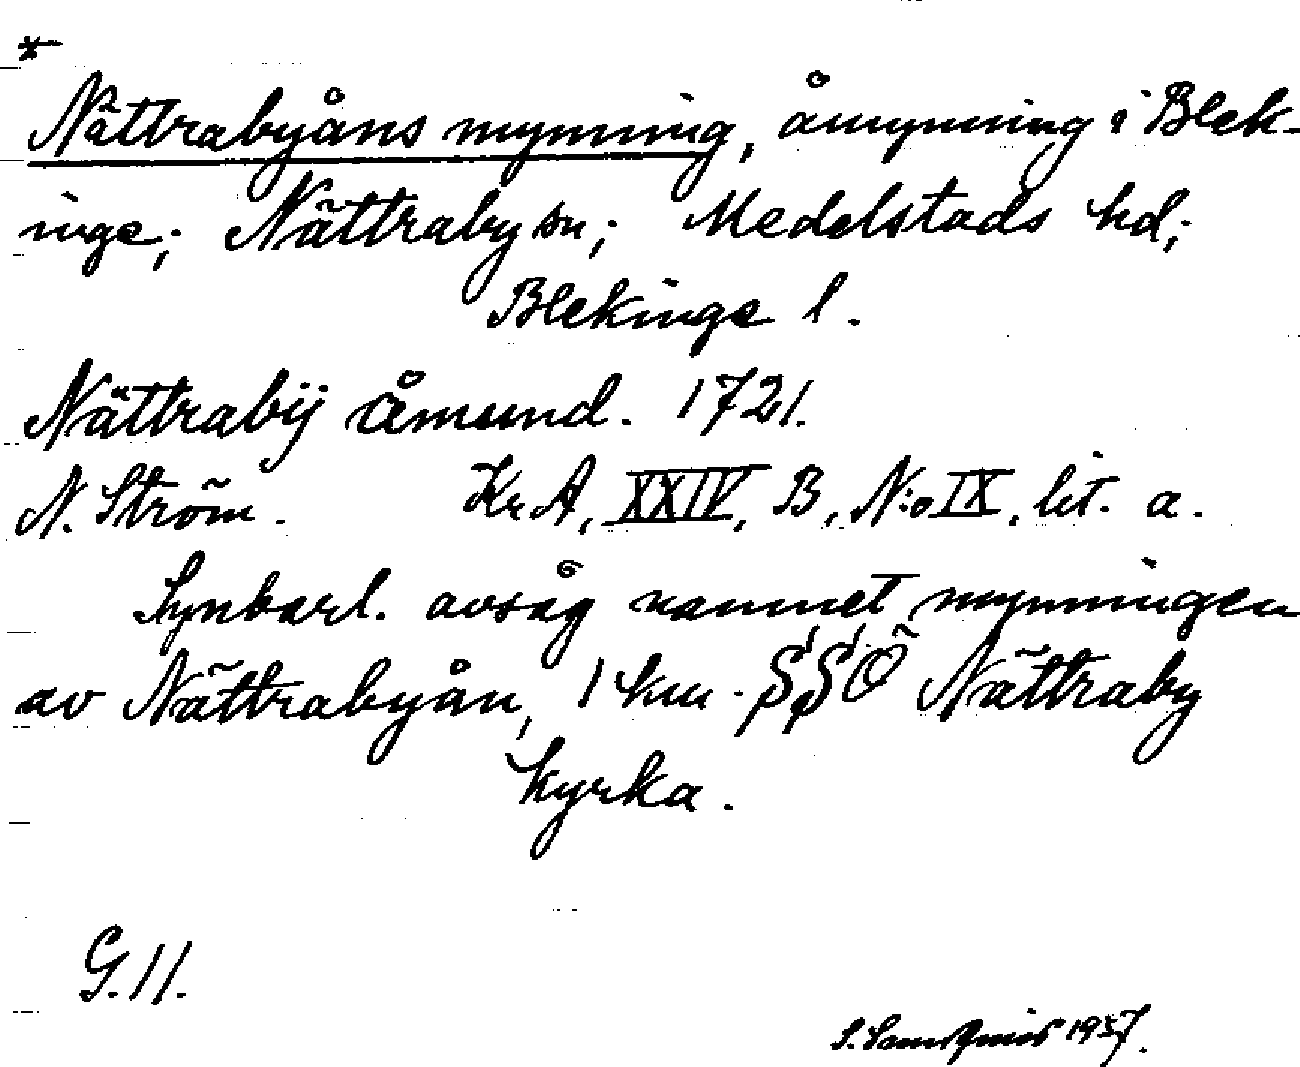 *
Nättrabyåns mynning, åmynning i Blek-
inge; Nättraby sn; Medelstads hd;
Blekinge l.
Nättrabÿ åmund. 1721.
N. Ström. KrA, XXIV, B, N:o IX, lit. a.
Synbarl. avsåg namnet mynningen
av Nättrabyån, 1 km. SSO Nättraby
kyrka.
G.11.
S. 1937.